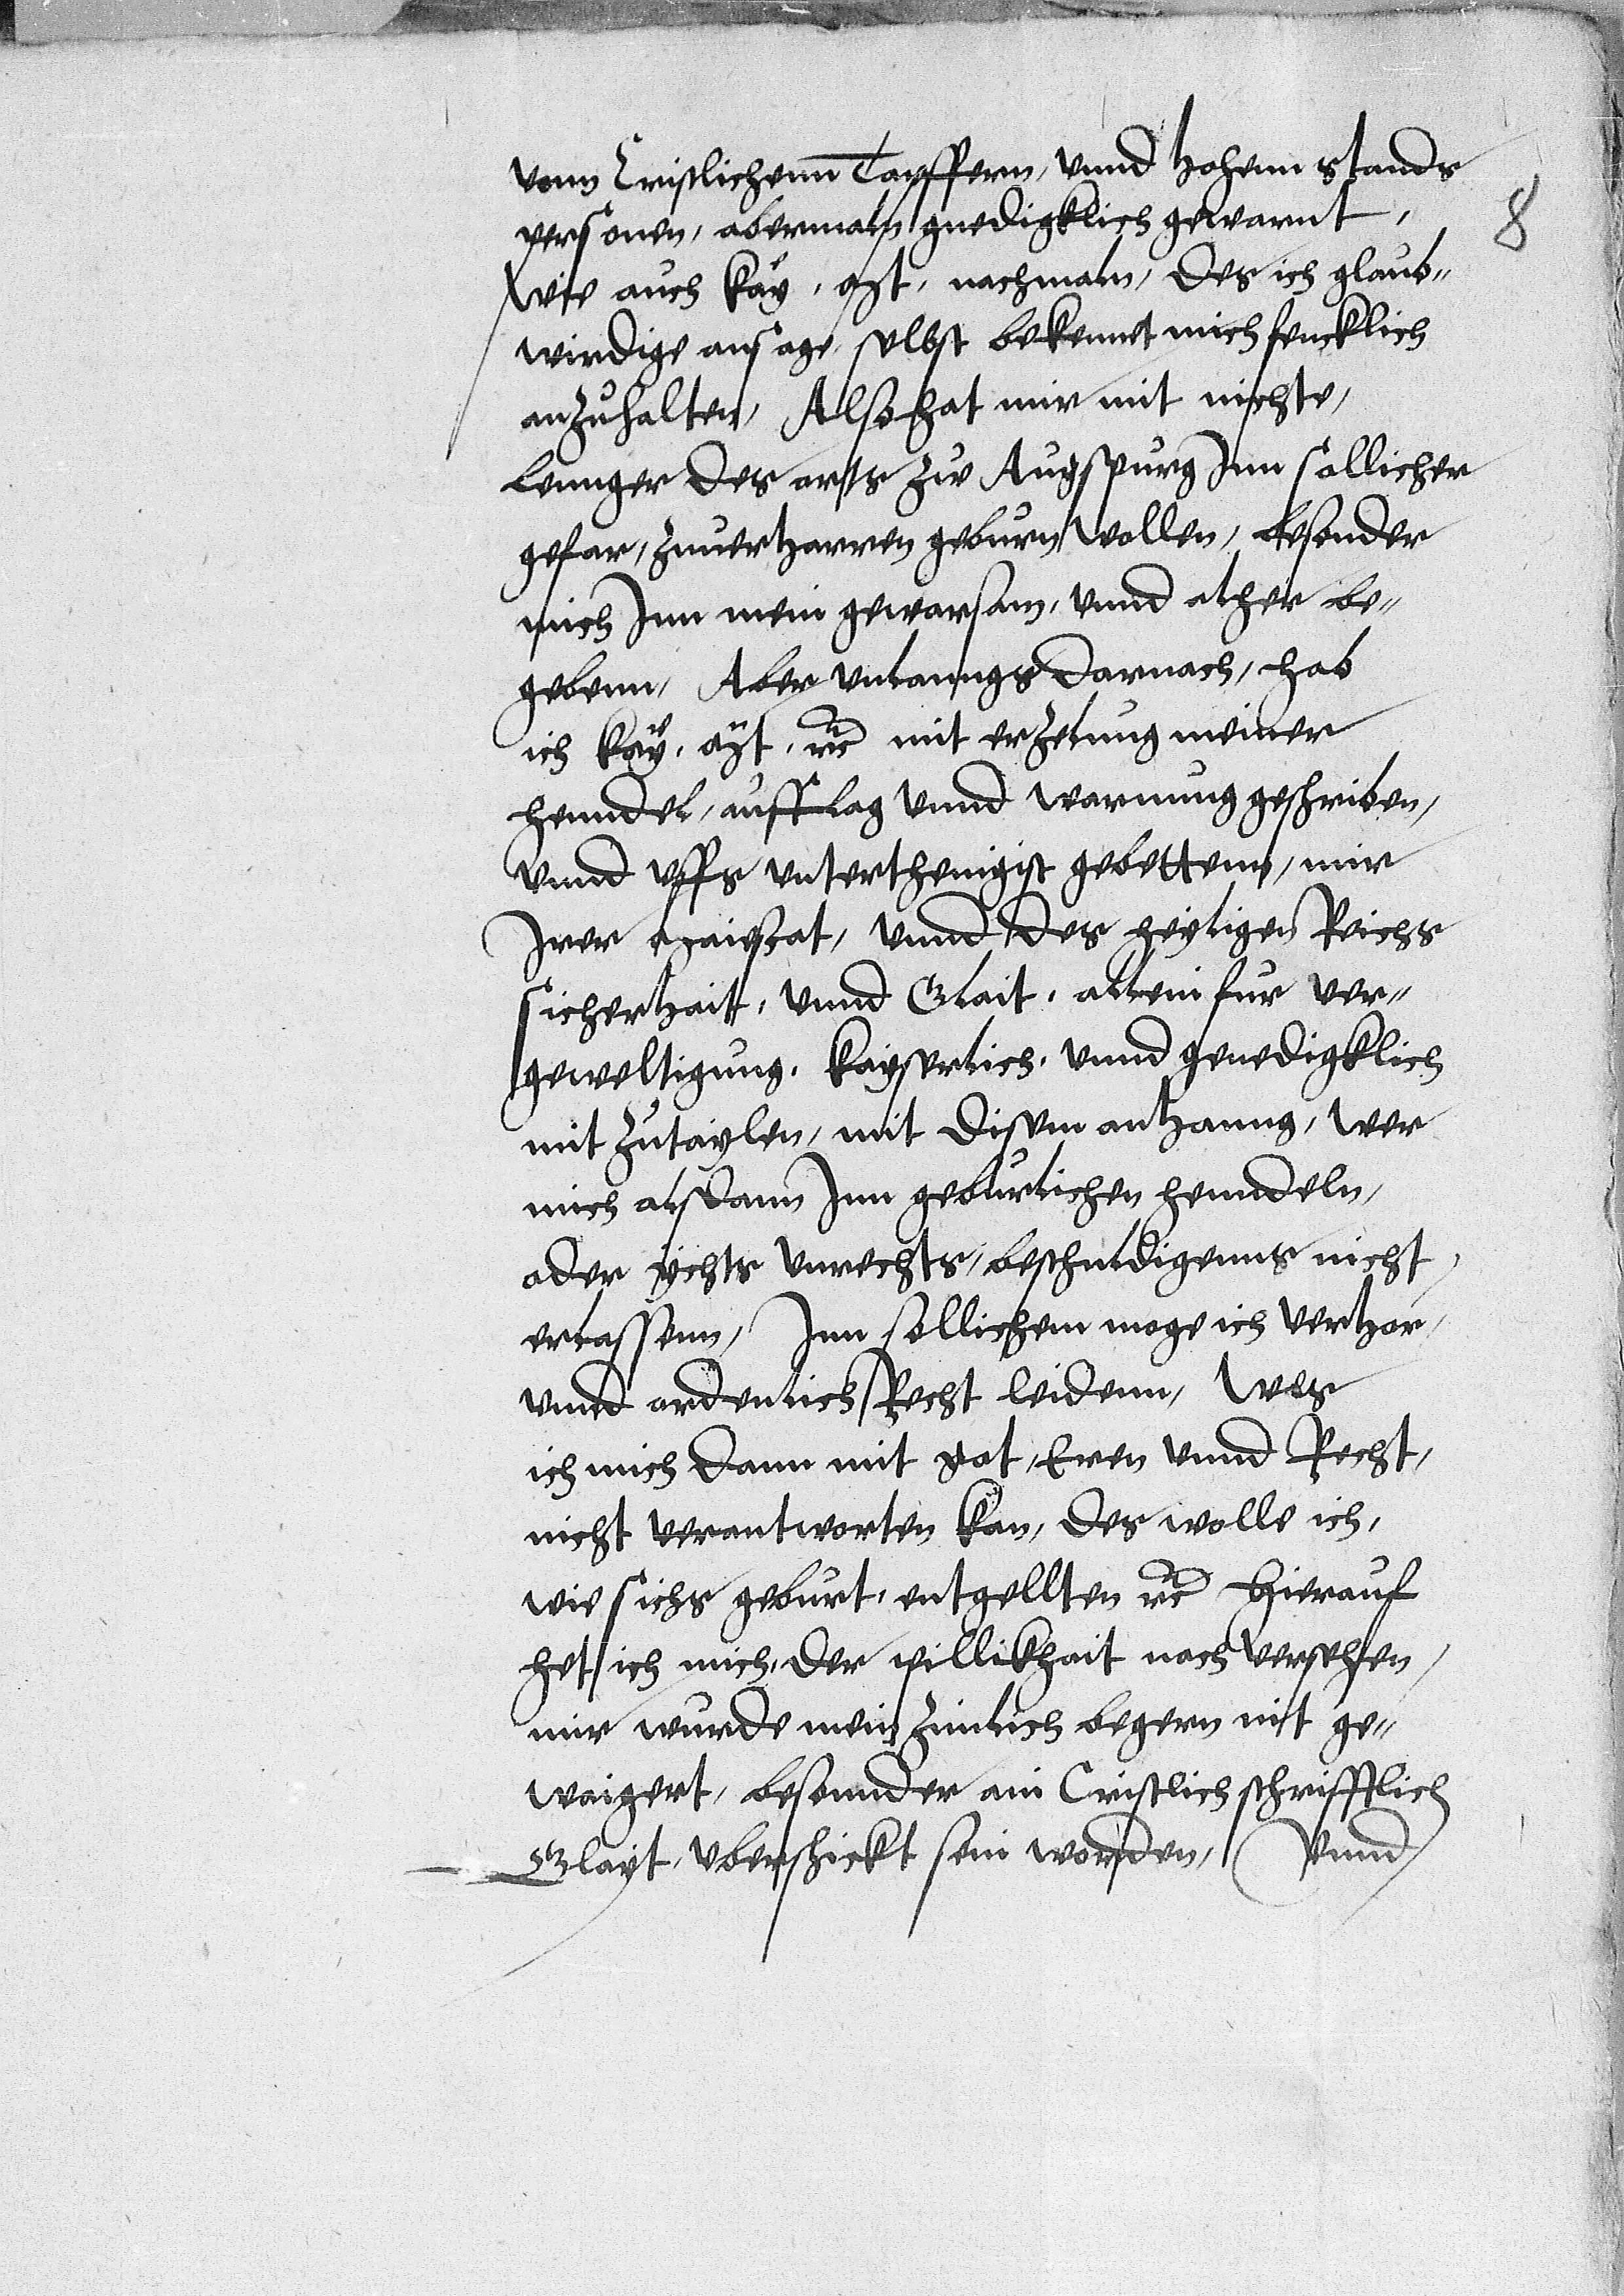 vonn Cristlichenn Tapffern, vnnd hohenn stands
8
personen, abermaln gnedigklich gewarnt,
Wie auch kay. Mt. nachmaln, des ich glaub„
wirdige ansage, selbst bekennt mich fencklich
anzuhalten, Also hat mir mit nichte,
lennger des orts zw Augspurg Inn sollicher
gefar, zuuerharren geburn wollen, besonder
mich Inn mein gewarsam, vnnd alher be„
gebenn, Aber vnlanngs darnach, hab
ich kay. Mt. rc mit erzelung meiner
henndel, aufflag vnnd warnung geschriben,
vnnd vffs vnterthenigist gebettenn, mir
Irer Maiestat, vnnd des heyligen Reichs
sicherhait, vnnd Glait, allein fur ver„
geweltigung, kayserlich, vnnd genedigklich
mit zutaylen, mit disem anhanng, wer
mich alsdann Inn geburlichen henndeln,
oder ychts vnrechts, beschuldigenns nicht
erlassenn, Inn sollichem moge ich verhor,
vnnd ordenlich Recht leidenn, Wes
ich mich dann mit got, Eren vnnd Recht,
nicht verantworten kan, des wolle ich,
wie sichs geburt, entgellten rc Hierauf
het ich mich, der pillikhait nach versehen,
mir wurde mein zimlich begern nit ge„
waigert, besonnder ain Cristlich schrifftlich
Glayt, vberschickt sein worden, Vnnd